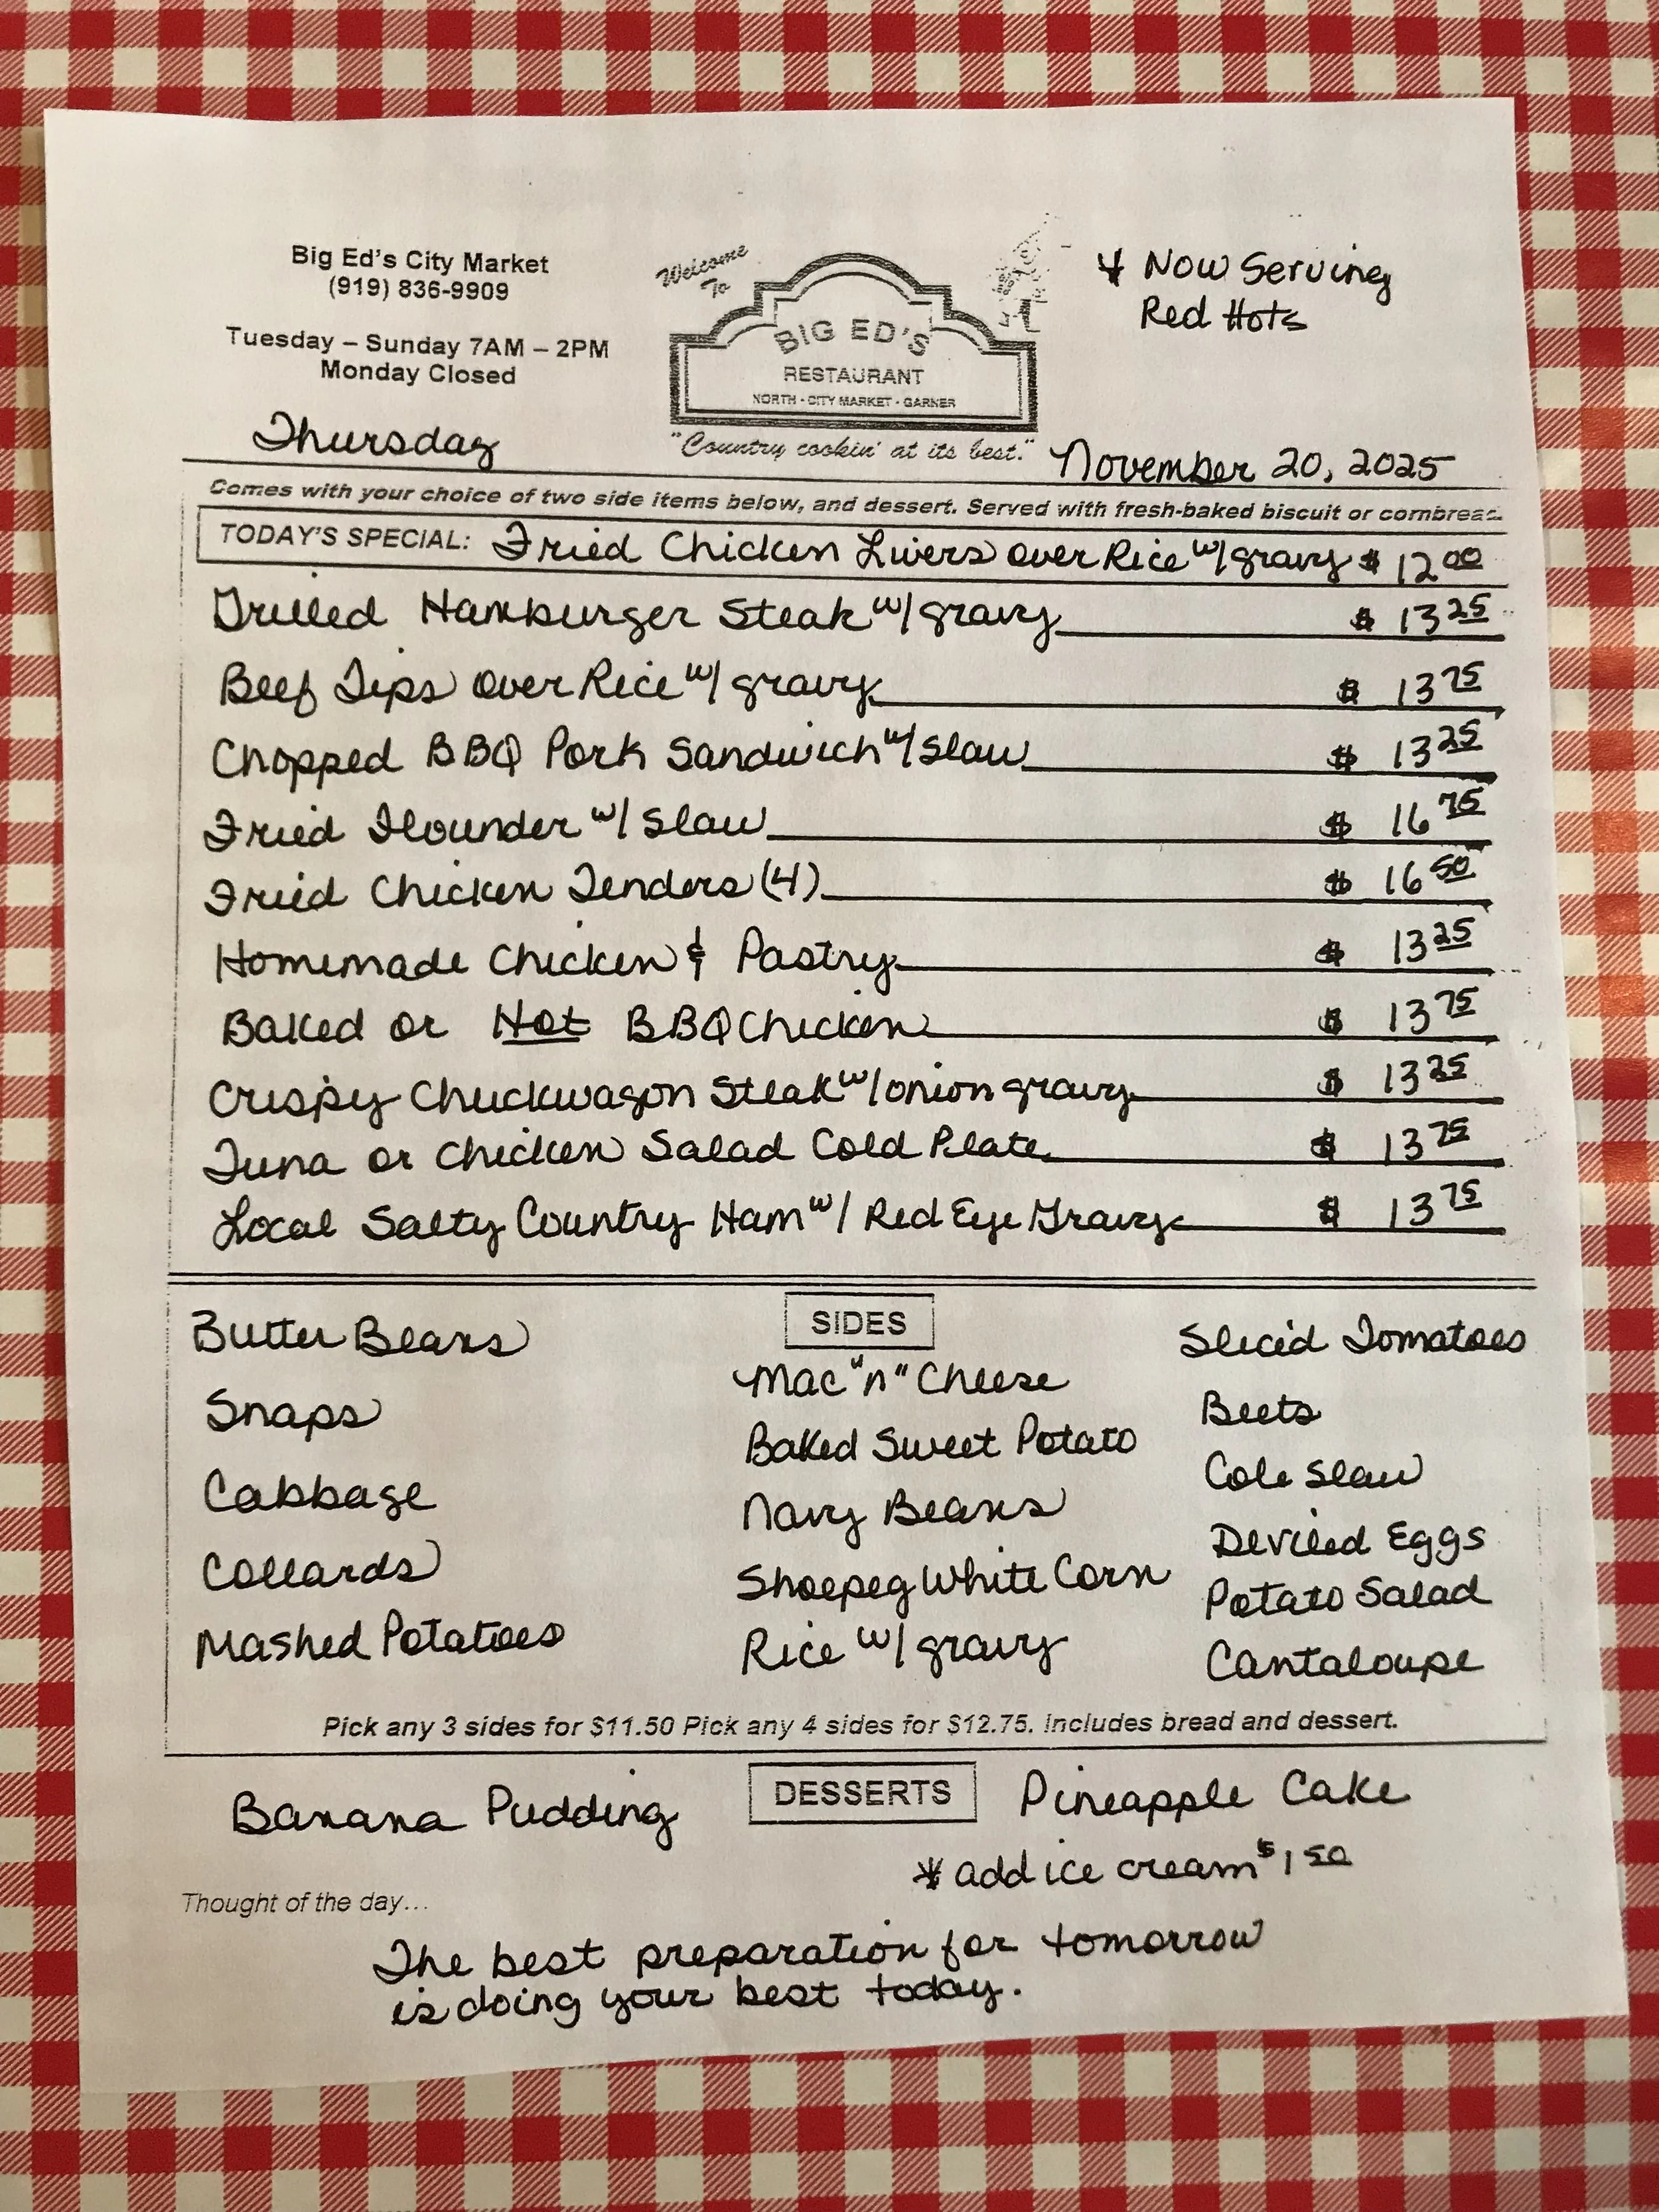 Big Ed's City Market
(919) 836-9909
Tuesday – Sunday 7AM – 2PM
Monday Closed
Welcome
To
BIG ED'S
RESTAURANT
NORTH - CITY MARKET - GARNER
"Country cookin' at its best."
* Now Serving
Red Hots
Thursday
November 20, 2025
Comes with your choice of two side items below, and dessert. Served with fresh-baked biscuit or cornbread.
TODAY'S SPECIAL: Fried Chicken Livers over Rice w/gravy $ 12 00
Grilled Hamburger Steak w/gravy $ 13 25
Beef Tips over Rice w/ gravy $ 13 75
Chopped BBQ Pork Sandwich w/slaw $ 13 25
Fried Flounder w/ slaw $ 16 75
Fried Chicken Tenders (4) $ 16 50
Homemade Chicken & Pastry $ 13 25
Baked or Hot BBQ Chicken $ 13 75
Crispy Chuckwagon Steak w/onion gravy $ 13 25
Tuna or Chicken Salad Cold Plate $ 13 75
Local Salty Country Ham w/ Red Eye Gravy $ 13 75
SIDES
Butter Beans
Snaps
Cabbage
Collards
Mashed Potatoes
Mac "n" Cheese
Baked Sweet Potato
Navy Beans
Shoepeg White Corn
Rice w/ gravy
Sliced Tomatoes
Beets
Cole Slaw
Deviled Eggs
Potato Salad
Cantaloupe
Pick any 3 sides for $11.50 Pick any 4 sides for $12.75. Includes bread and dessert.
DESSERTS
Banana Pudding
Pineapple Cake
* add ice cream $1 50
Thought of the day...
The best preparation for tomorrow
is doing your best today.